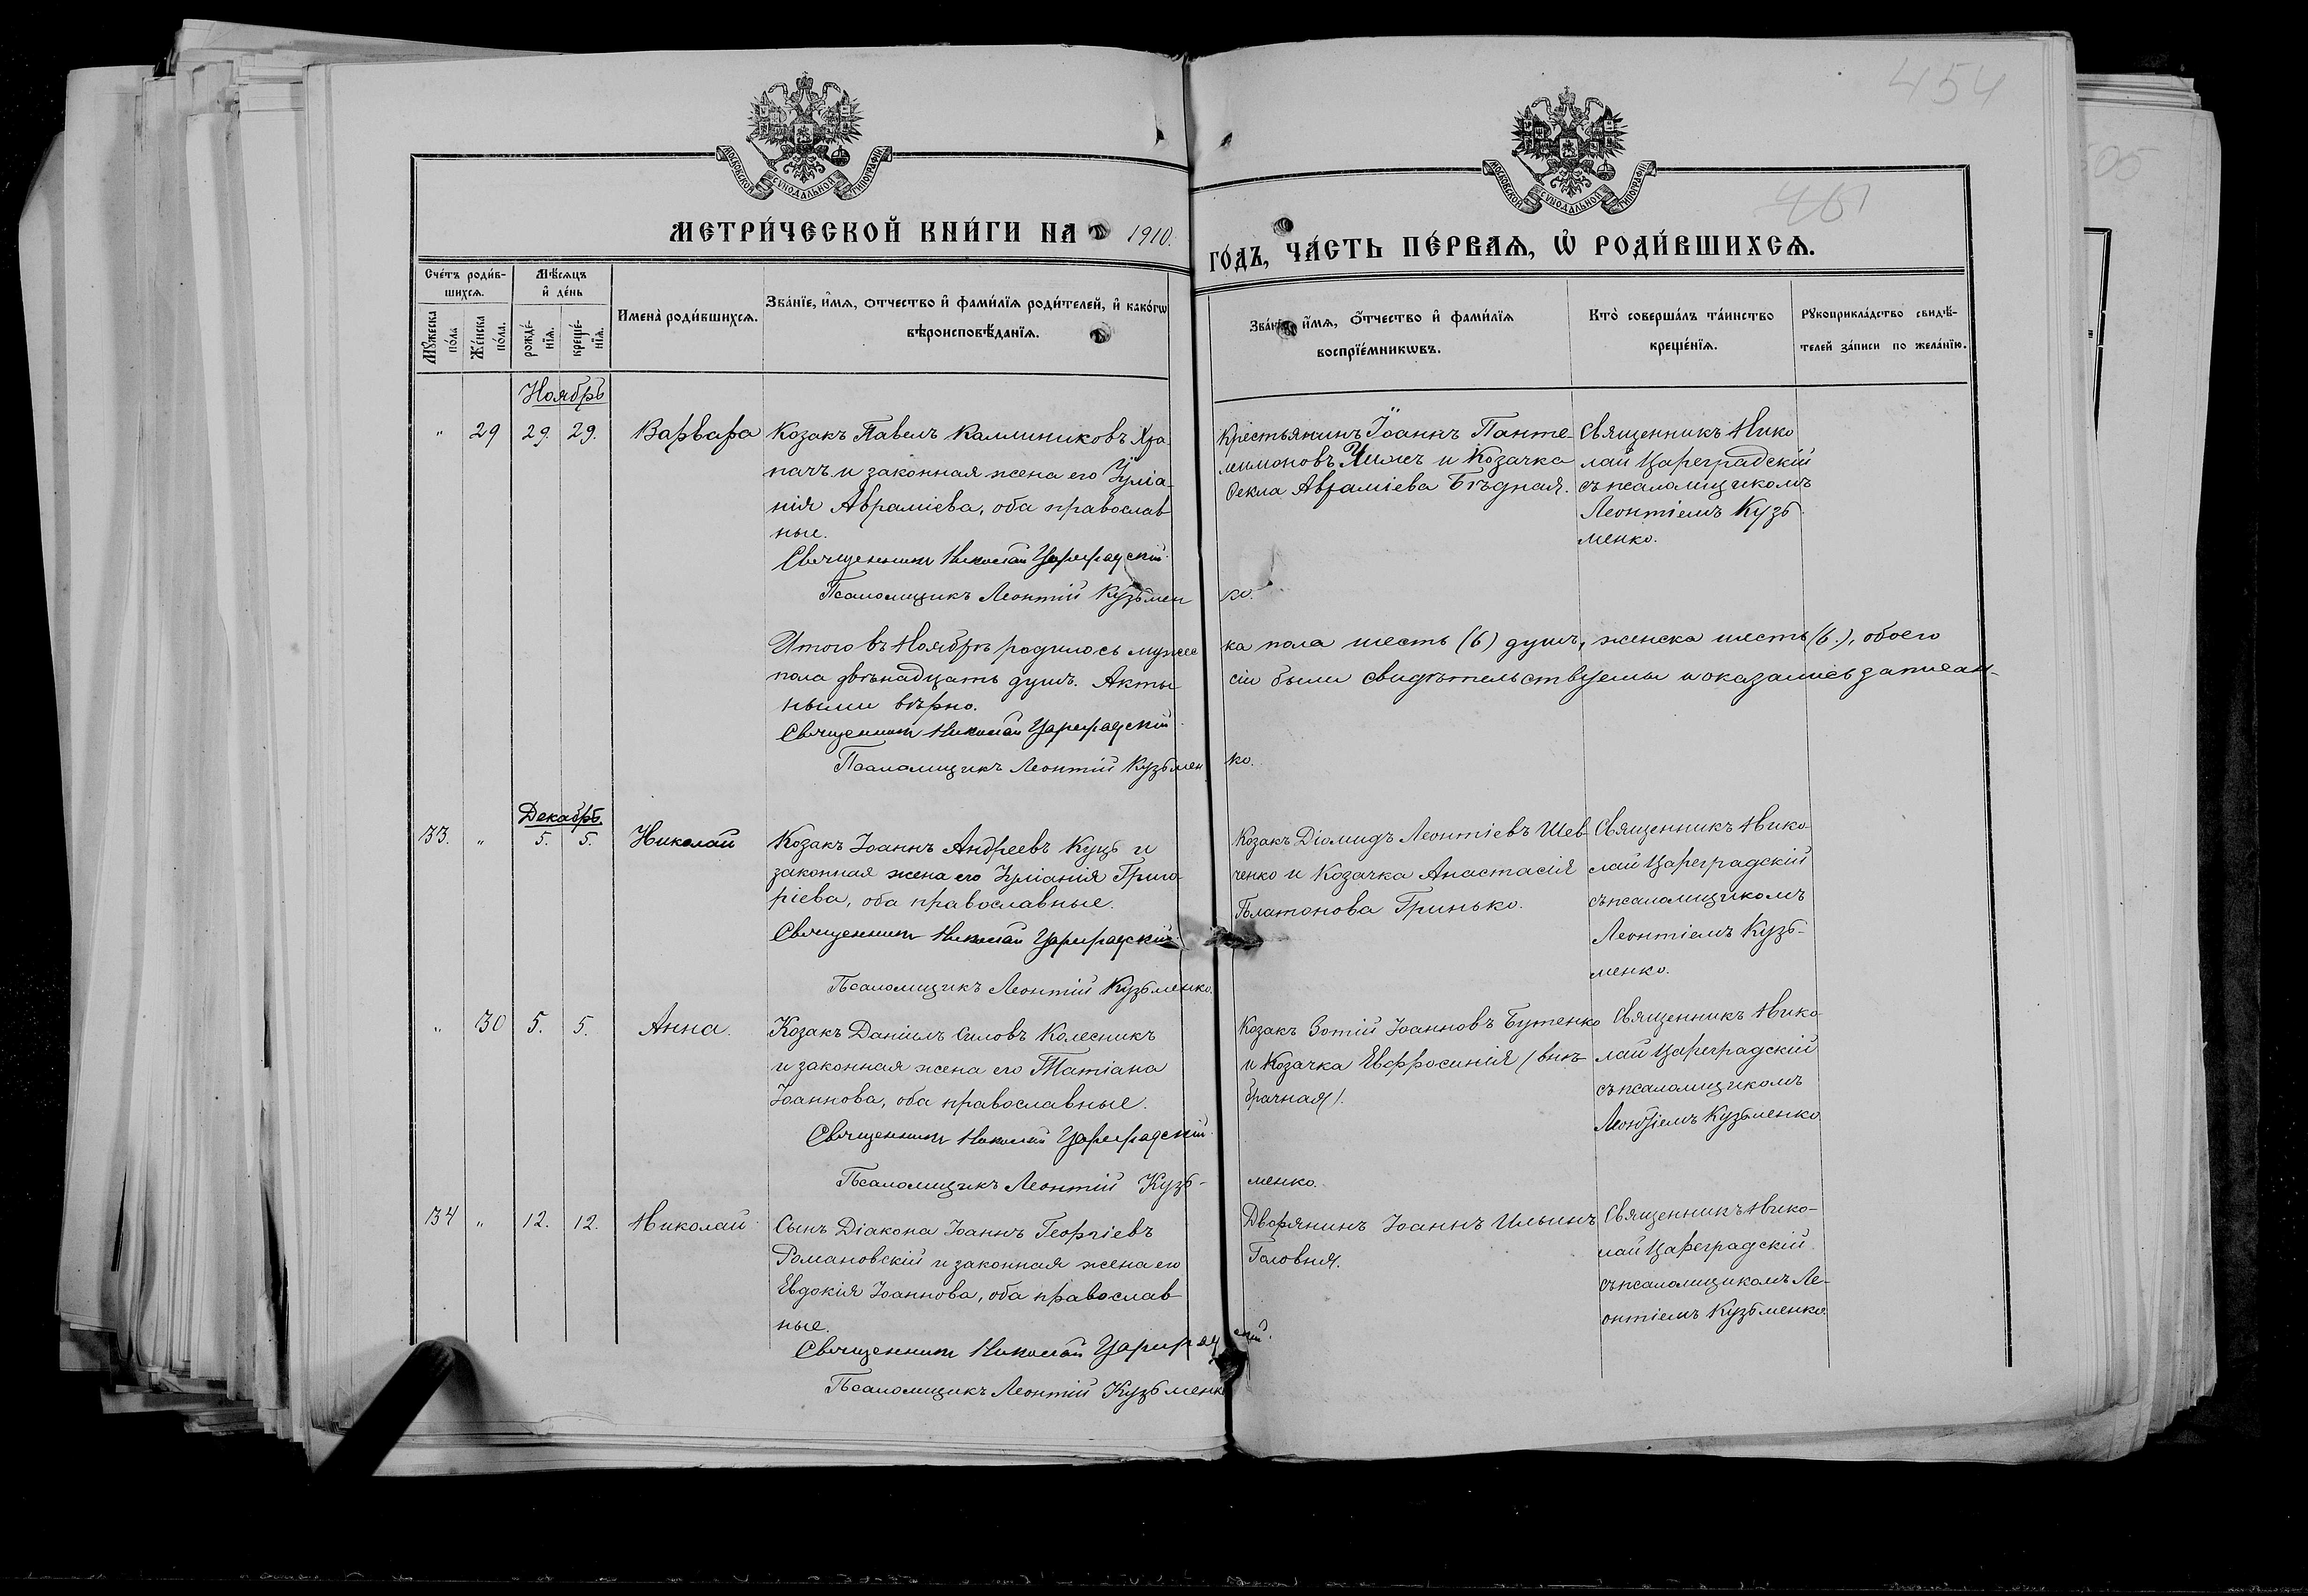 454
461
МОСКОВСКОЙ СѴНОДАЛЬНОЙ ТИПОГРАФІИ
МОСКОВСКОЙ СѴНОДАЛЬНОЙ ТИПОГРАФІИ
МЕТРИ́ЧЕСКОЙ КНИ́ГИ НА 1910.
ГО́ДЪ, ЧА́СТЬ ПЕ́РВАѦ, Ѡ҆ РОДИ́ВШИХСѦ.
Сче́тъ роди́в-
шихсѧ.
Мѣ́сѧцъ
и҆ де́нь
Мꙋ́жеска по́ла
Же́нска по́ла.
рожде́-
нїѧ.
креще́-
нїѧ.
Имена̀ роди́вшихсѧ.
Зва́нїе, и҆́мѧ, ѻтчество и҆ фами́лїѧ роди́телей, и҆ како́гѡ
вѣроисповѣ́данїѧ.
Зва́нїе, и҆́мѧ, ѻ҆́тчество и҆ фами́лїѧ
воспрїе́мникѡвъ.
Кто̀ соверша́лъ та́инство
креще́нїѧ.
Рꙋкоприкла́дство свидѣ́-
телей за́писи по жела́нїю.
Ноябрь
" 29 29. 29. Варвара
Козакъ Павелъ Каллиниковъ Хра
пачъ и законная жена его Іуліа-
нія Авраміева, оба православ
ные.
Священникъ Николай Цареградскій.
Псаломщикъ Леонтій Кузьмен ко.
Крестьянинъ Іоаннъ Панте-
леимоновъ и Козачка
Ѳекла Авраміева Бѣдная.
Священникъ Нико
лай Цареградскій
съ псаломщикомъ
Леонтіемъ Кузь
менко.
Итого въ Ноябрѣ родилось мужес ка пола шесть (6) душъ, женска шесть (6.), обоего
пола двѣнадцать душъ. Акты сіи были свидѣтельствуемы и оказались записан-
ными вѣрно.
Священникъ Николай Цареградскій.
Псаломщикъ Леонтій Кузьмен ко.
Декабрь.
33. " 5. 5. Николай
Козакъ Іоаннъ Андреевъ Куцъ и
законная жена его Іуліанія Григо
ріева, оба православные.
Священникъ Николай Цареградскій
Псаломщикъ Леонтій Кузьменко.
Козакъ Діомидъ Леонтіевъ Шев
ченко и Козачка Анастасія
Платонова Гринько.
Священникъ Нико-
лай Цареградскій
съ псаломщикомъ
Леонтіемъ Кузь-
менко.
" 30 5. 5. Анна.
Козакъ Даніилъ Силовъ Колесникъ
и законная жена его Татіана
Іоаннова, оба православные.
Священникъ Николай Цареградскій.
Псаломщикъ Леонтій Кузь- менко.
Козакъ Зотій Іоанновъ Бутенко
и Козачка Евфросинія (внѣ
брачная).
Священникъ Нико
лай Цареградскій
съ псаломщикомъ
Леонтіемъ Кузьменко
34 " 12. 12. Николай
Сынъ Діакона Іоаннъ Георгіевъ
Романовскій и законная жена его
Евдокія Іоаннова, оба православ
ные.
Священникъ Николай Цареградскій.
Псаломщикъ Леонтій Кузьменко
Дворянинъ Іоаннъ Ильинъ
Головня.
Священникъ Нико-
лай Цареградскій.
съ псаломщикомъ Ле-
онтіемъ Кузьменко.